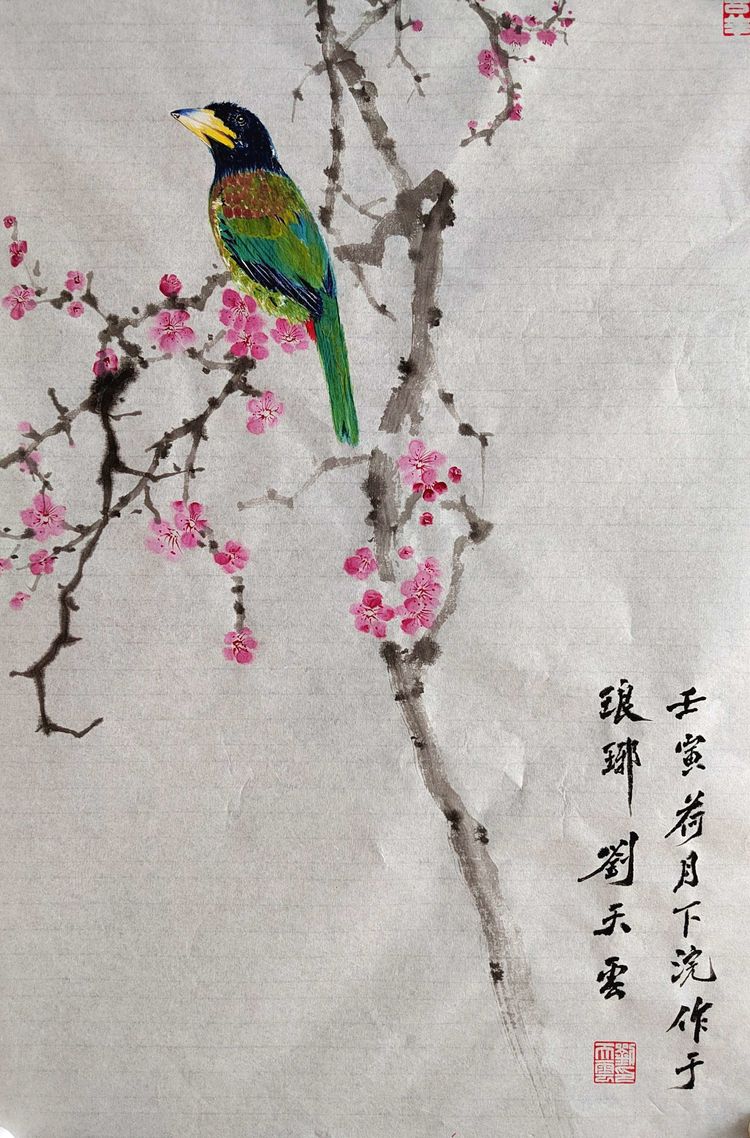 壬寅荷月下浣作于
琅琊劉天雲